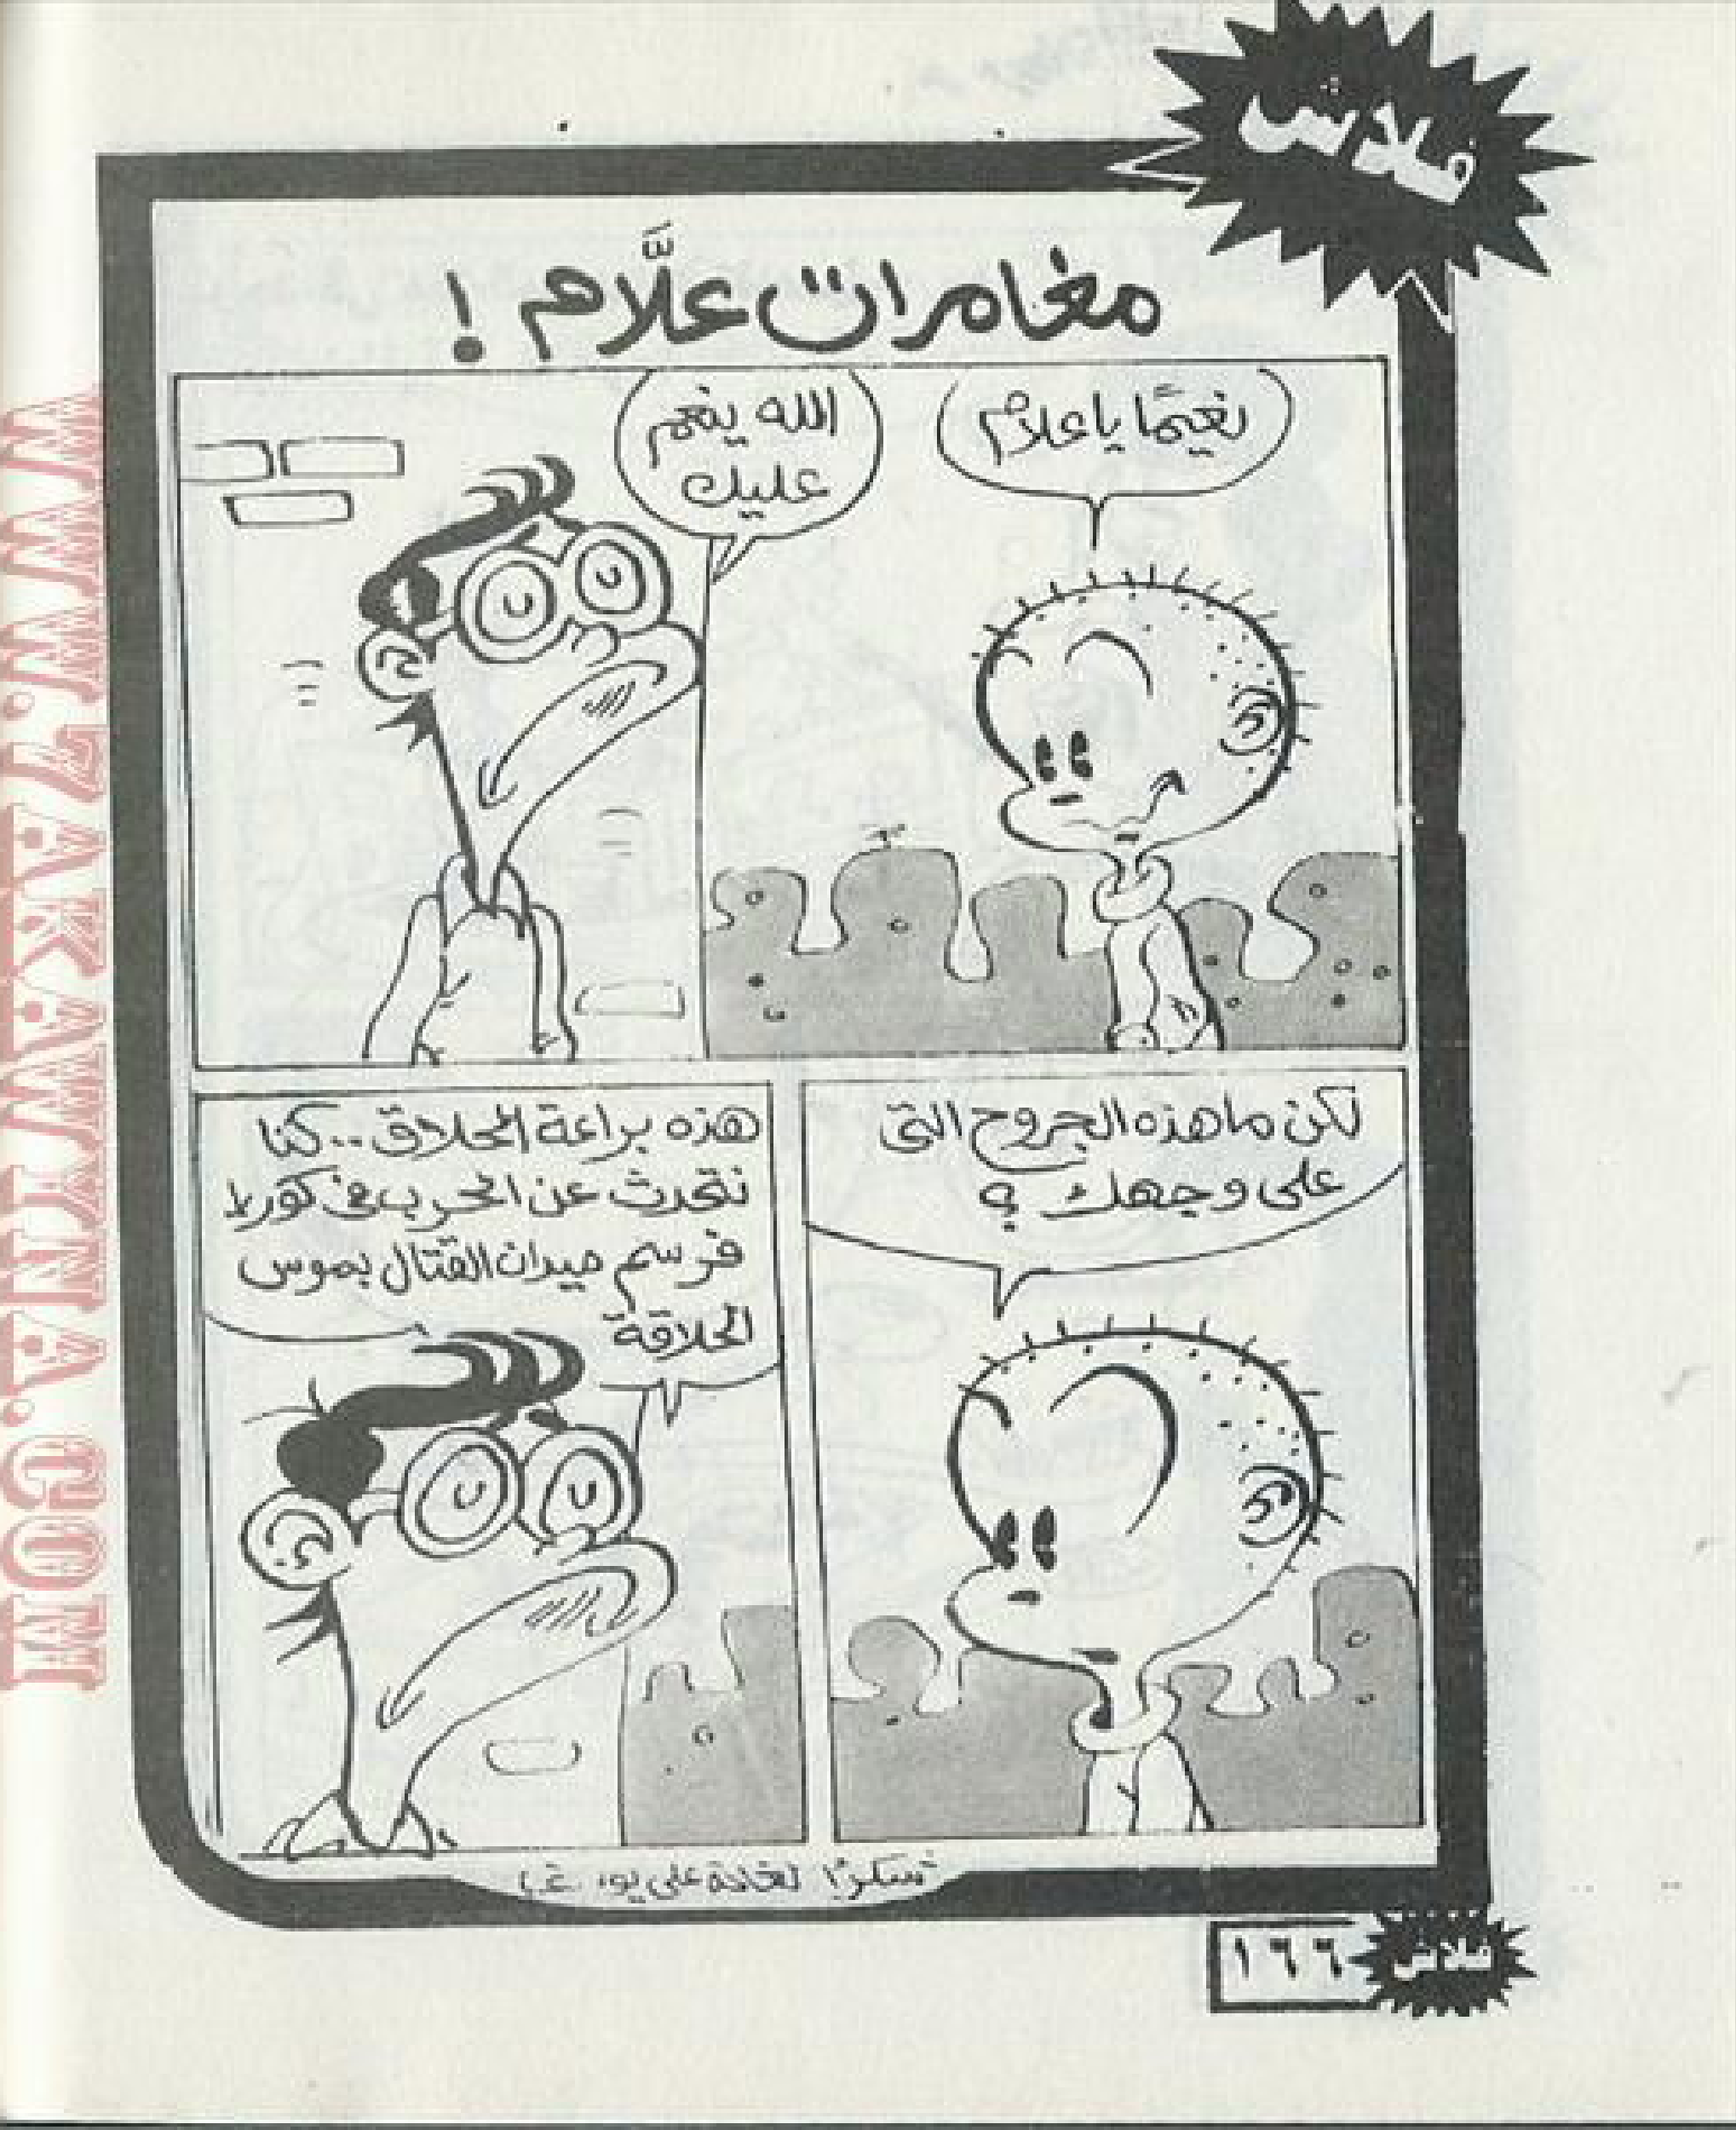 فلاش
مغامرات علَّام !
نعيمًا يا علام
الله ينعم
عليك
لكن ما هذه الجروح التى
على وجهك ؟
هذه براعة الحلاق .. كنا
نتحدث عن الحرب فى كوريا
فرسم ميدان القتال بموس
الحلاقة
شكرًا لخالة على
فلاش
١٦٦
WWW.7AKAWTNA.COM